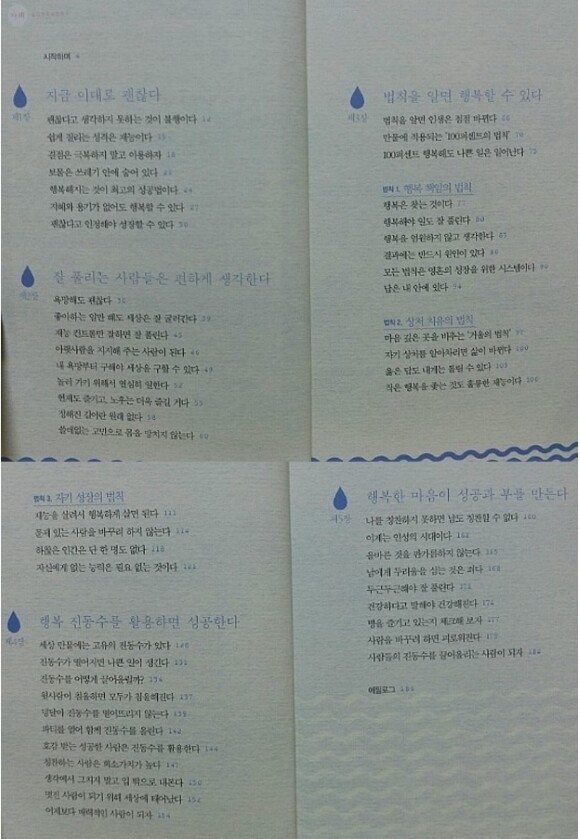 시작하며 4
제1장
지금 이대로 괜찮다
괜찮다고 생각하지 못하는 것이 불행이다
쉽게 질리는 성격은 재능이다
결점은 극복하지 말고 이용하자
보물은 쓰레기 안에 숨어 있다
행복해지는 것이 최고의 성공법이다
지혜와 용기가 없어도 행복할 수 있다
괜찮다고 인정해야 성장할 수 있다
제2장
잘 풀리는 사람들은 편하게 생각한다
욕망해도 괜찮다
좋아하는 일만 해도 세상은 잘 굴러간다
재능 컨트롤만 잘하면 잘 풀린다
아랫사람을 지지해 주는 사람이 된다
내 욕망부터 구해야 세상을 구할 수 있다
놀러 가기 위해서 열심히 일한다
현재도 즐기고, 노후는 더욱 즐길 거다
정해진 길이란 원래 없다
쓸데없는 고민으로 몸을 망치지 않는다
제3장
법칙을 알면 행복할 수 있다
법칙을 알면 인생은 점점 바뀐다
만물에 적용되는 '100퍼센트의 법칙'
100퍼센트 행복해도 나쁜 일은 일어난다
법칙 1. 행복 책임의 법칙
행복은 찾는 것이다
행복해야 일도 잘 풀린다
행복을 염원하지 않고 생각한다
결과에는 반드시 원인이 있다
모든 법칙은 영혼의 성장을 위한 시스템이다
답은 내 안에 있다
법칙 2. 상처 치유의 법칙
마음 깊은 곳을 비추는 '거울의 법칙'
자기 상처를 알아차리면 삶이 바뀐다
옳은 답도 내게는 틀릴 수 있다
작은 행복을 좇는 것도 훌륭한 재능이다
법칙 3. 자기 성장의 법칙
재능을 살려서 행복하게 살면 된다 111
문제 있는 사람을 바꾸려 하지 않는다
하찮은 인간은 단 한 명도 없다
자신에게 없는 능력은 필요 없는 것이다
제4장
행복 진동수를 활용하면 성공한다
세상 만물에는 고유의 진동수가 있다
진동수가 떨어지면 나쁜 일이 생긴다
진동수를 어떻게 끌어올릴까?
윗사람이 침울하면 모두가 침울해진다
덩달아 진동수를 떨어뜨리지 않는다
파티를 열어 함께 진동수를 올린다
호감 받는 성공한 사람은 진동수를 활용한다
칭찬하는 사람은 희소가치가 높다
생각에서 그치지 말고 입 밖으로 내본다
멋진 사람이 되기 위해 세상에 태어났다
어제보다 매력적인 사람이 되자
제5장
행복한 마음이 성공과 부를 만든다
나를 칭찬하지 못하면 남도 칭찬할 수 없다
이제는 인성의 시대이다
올바른 것을 판가름하지 않는다
남에게 두려움을 심는 것은 죄다
두근두근해야 잘 풀린다
건강하다고 말해야 건강해진다
병을 즐기고 있는지 체크해 보자
사람을 바꾸려 하면 괴로워진다
사람들의 진동수를 끌어올리는 사람이 되자
에필로그